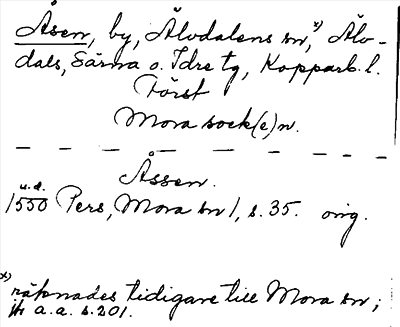 Åsen, by, Älvdalens sn,x) Älv-
dals, Särna o. Idre tg, Kopparb. l.
Först
Mora sock(e)n.
Åssen.
u.d.
1550 Pers, Mora sn 1, s. 35. orig.
x)
räknades tidigare till Mora sn;
jfr a.a. s. 201.